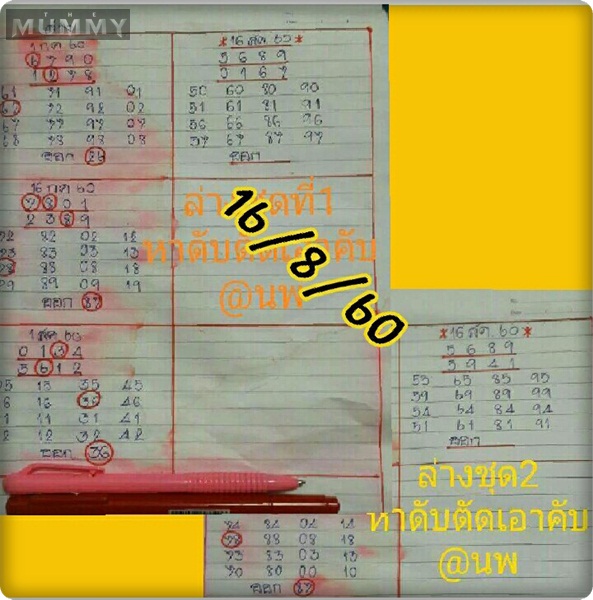 THE
MUMMY
1 กค 60
6 7 9 0
1 2 7 8
61 71 91 01
62 72 92 02
67 77 97 07
68 78 98 08
ออก 26
*16 สค 60*
5 6 8 9
0 1 6 7
50 60 80 90
51 61 81 91
56 66 86 96
57 67 87 97
ออก
16 กค 60
2 8 0 1
2 3 8 9
22 82 02 12
23 83 03 13
28 88 08 18
29 89 09 19
ออก
ล่างชุดที่1
หาดับตัดเอาคับ
@นพ
16/8/60
1 สค 60
0 1 3 4
5 6 1 2
5 15 35 45
6 16 36 46
1 11 31 41
2 12 32 42
ออก 36
*16 สค 60*
5 6 8 9
5 9 4 1
55 65 85 95
59 69 89 99
54 64 84 94
51 61 81 91
ออก
ล่างชุด2
หาดับตัดเอาคับ
@นพ
84 04 14
28 88 08 18
83 03 13
80 00 10
ออก